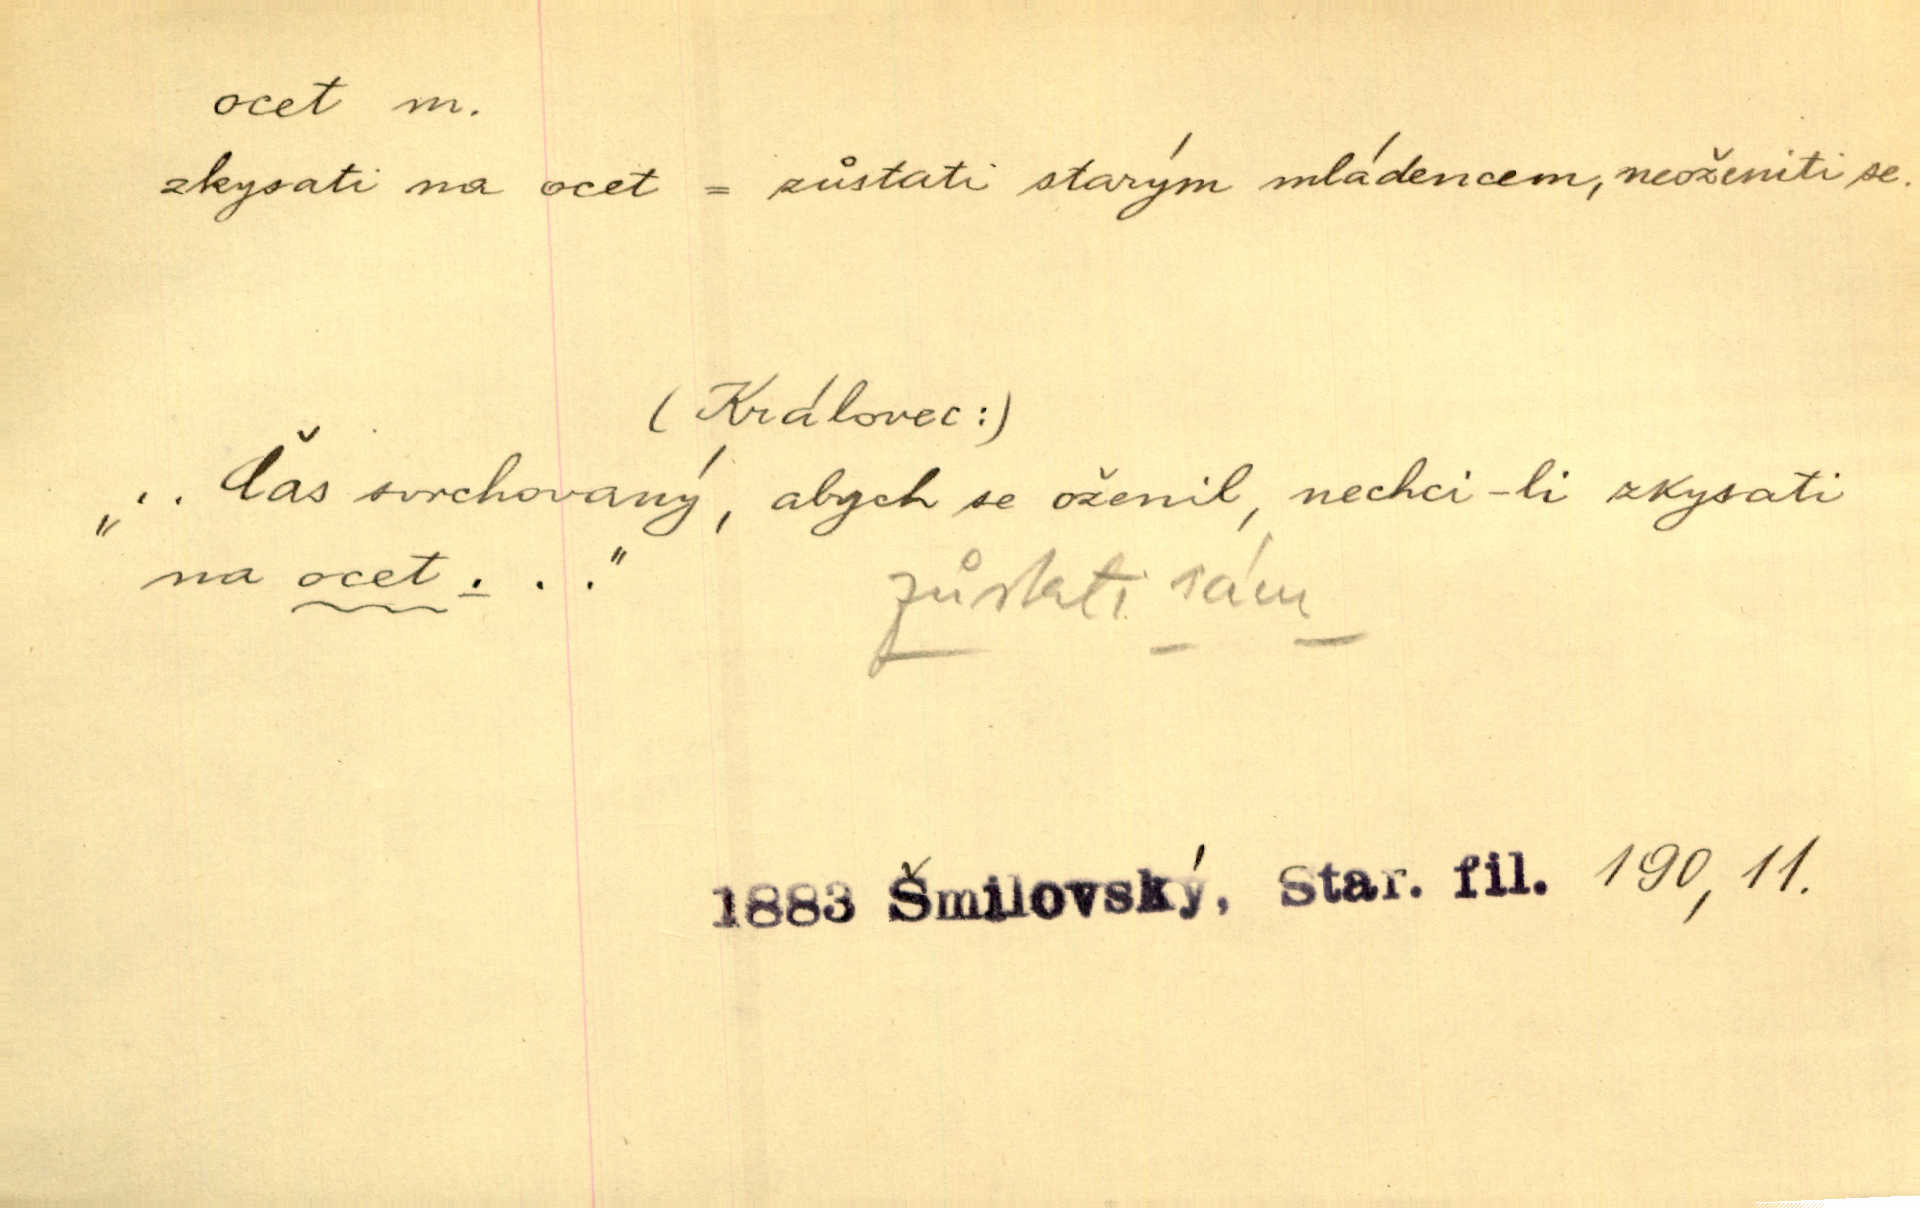 ocet m.
zkysati na ocet = zůstati starým mládencem, neoženiti se.
(Královec:)
„.. Čas svrchovaný, abych se oženil, nechci-li zkysati
na ocet . . .“
zůstati sám
1883 Šmilovský, Star. fil. 190, 11.